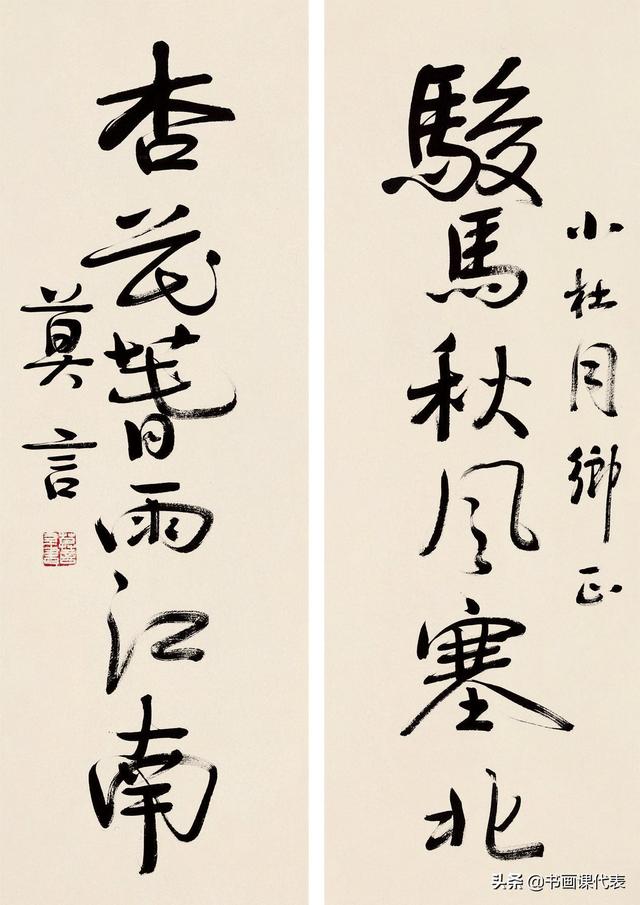 小杜同鄉正
駿馬秋風塞北
杏花春雨江南
莫言
头条 @书画课代表